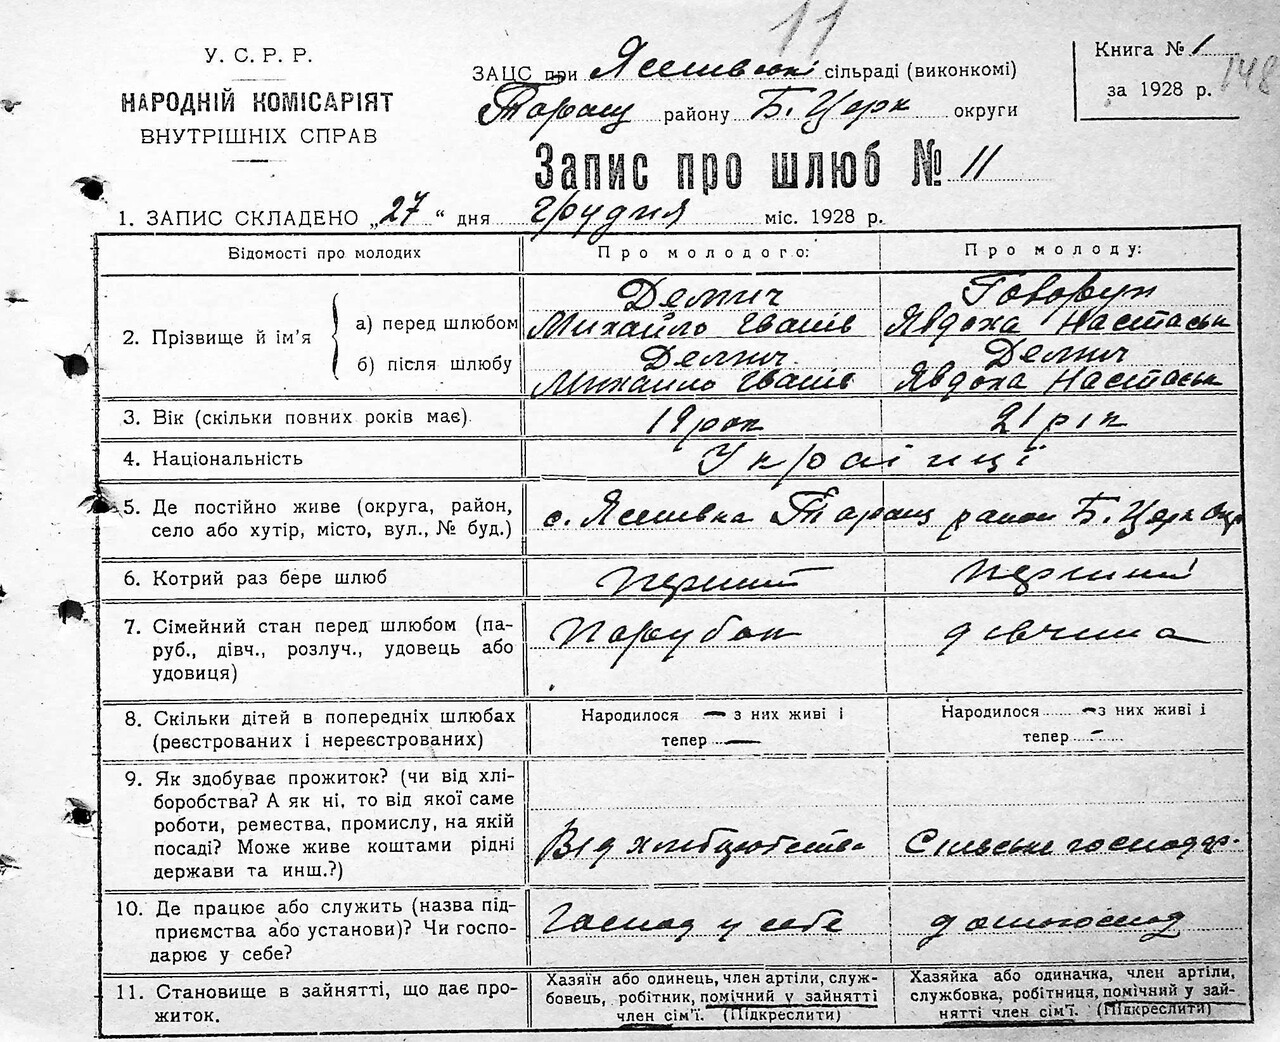 11
У. С. Р. Р.
НАРОДНІЙ КОМІСАРІЯТ
ВНУТРІШНІХ СПРАВ
ЗАЦС при сільраді (виконкомі)
Таращ району Б. Церк округи
Книга № 1
за 1928 р.
148
Запис про шлюб № 11
1. ЗАПИС СКЛАДЕНО „27“ дня грудня міс. 1928 р.
Відомості про молодих Про молодого: Про молоду:
2. Прізвище й ім'я
а) перед шлюбом
Демич Говорун
Михайло Іванів Явдоха Настаськ
б) після шлюбу
Демич Демич
Михайло Іванів Явдоха Настаськ
3. Вік (скільки повних років має). 19 рок 21 рік
4. Національність Українці
5. Де постійно живе (округа, район,
село або хутір, місто, вул., № буд.) с. Таращ район Б. Церк Окр
6. Котрий раз бере шлюб перший перший
7. Сімейний стан перед шлюбом (па-
руб., дівч., розлуч., удовець або
удовиця)
Парубок дівчина
8. Скільки дітей в попередніх шлюбах
(реєстрованих і нереєстрованих)
Народилося — з них живі і
тепер —
Народилося — з них живі і
тепер -
9. Як здобуває прожиток? (чи від хлі-
боробства? А як ні, то від якої саме
роботи, ремества, промислу, на якій
посаді? Може живе коштами рідні
держави та инш.?)
Від Сільське господар.
10. Де працює або служить (назва під-
приємства або установи)? Чи госпо-
дарює у себе?
Господ у себе домогоспод
11. Становище в зайнятті, що дає про-
житок.
Хазяїн або одинець, член артіли, служ-
бовець, робітник, помічний у зайнятті
член сім'ї. (Підкреслити)
Хазяйка або одиначка, член артіли,
службовка, робітниця, помічний у зай-
нятті член сім'ї. (Підкреслити)